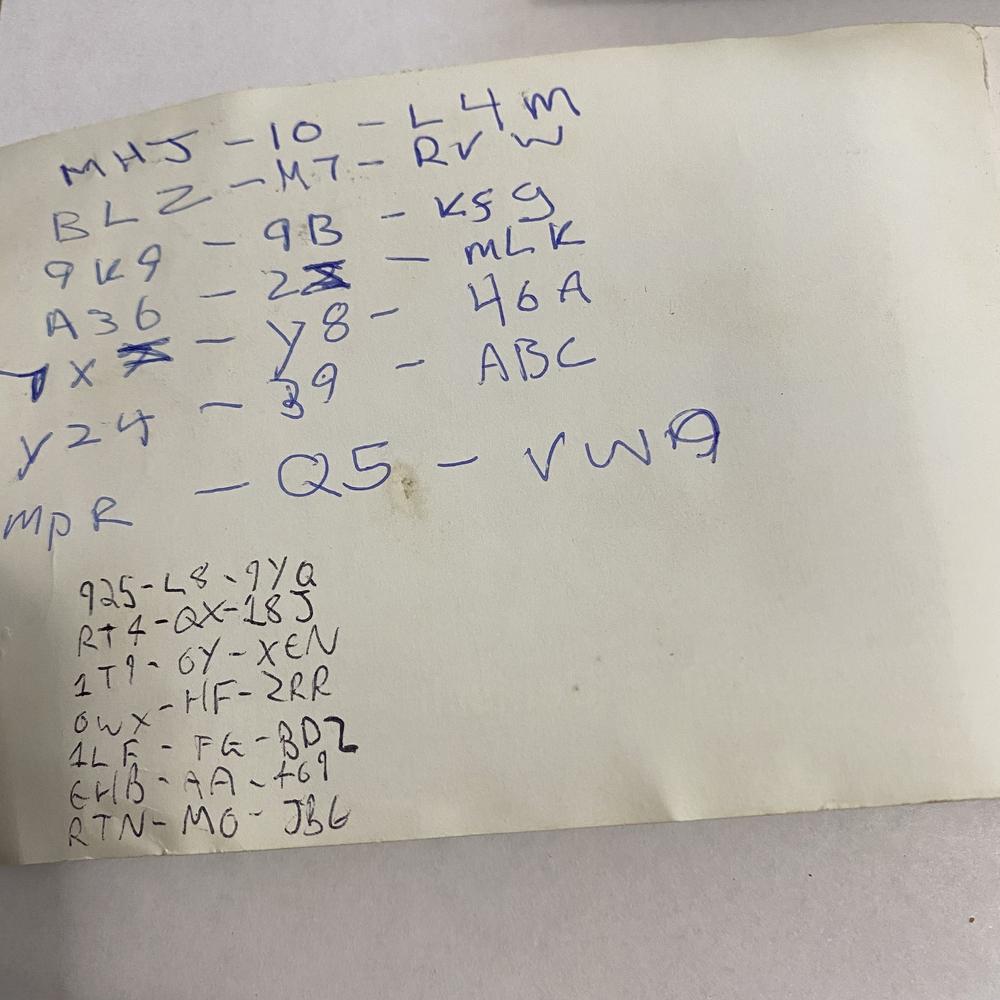 MHJ - 10 - L4M
BLZ - M7 - RVW
9K9 - 9B - K59
A36 - 2X - MLK
YX7 - Y8 - 46A
Y24 - 39 - ABC
MPR - Q5 - VW9
925-L8-9YQ
RT4-QX-18J
1T9-6Y-XEN
0WX-HF-2RR
1LF-FG-BDZ
EHB-AA-469
RTN-MO-JBG